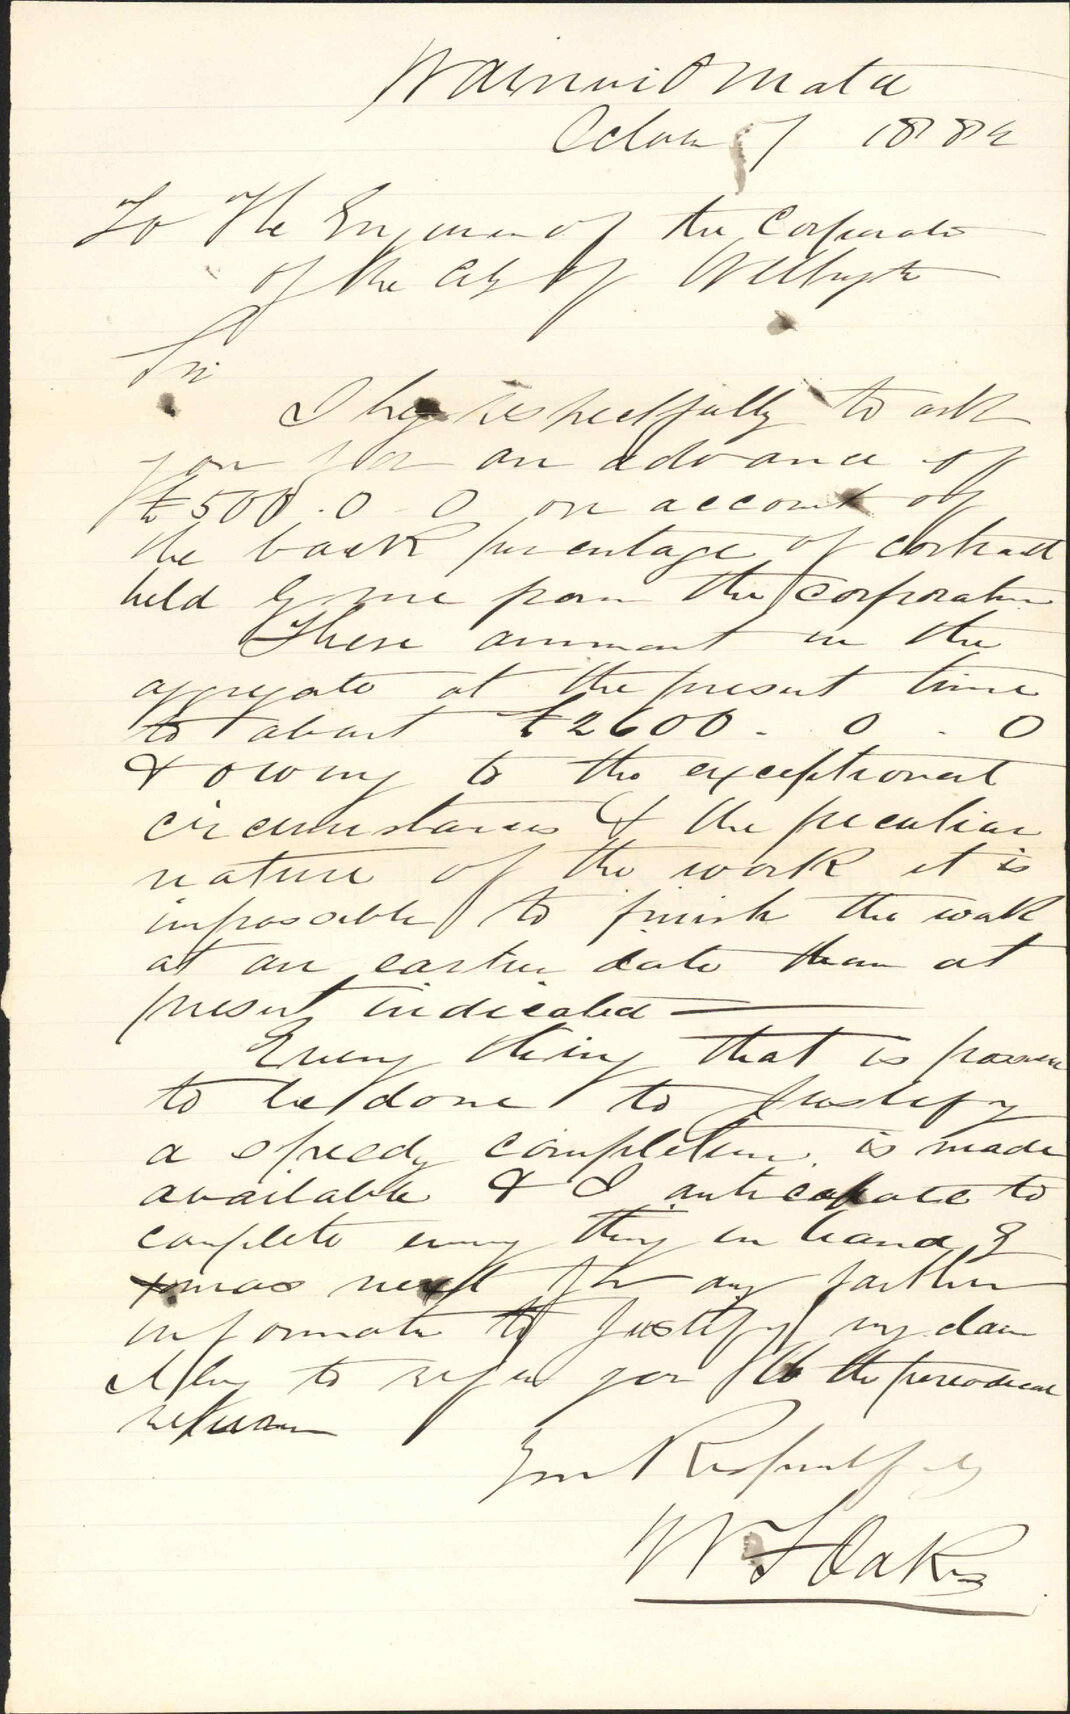 Wainuiomata
October 7 1882
To The Engineer of the Corporation
of the City of Wellington
Sir
I beg respectfully to ask
you for an advance of
£500 . 0 . 0 on account of
the back percentage of contract
held by me from the Corporation
These amount in the
aggregate at the present time
to about £2600 . 0 . 0
& owing to the exceptional
circumstances & the peculiar
nature of the work it is
impossible to finish the work
at an earlier date than at
present indicated —
Every thing that is possible
to be done to Justify
a speedy completion is made
available & I anticipate to
complete every thing in hand by
xmas next for any further
information to Justify my claim
I beg to refer you to the periodical
returns
Your Respectfully
W F Oakes